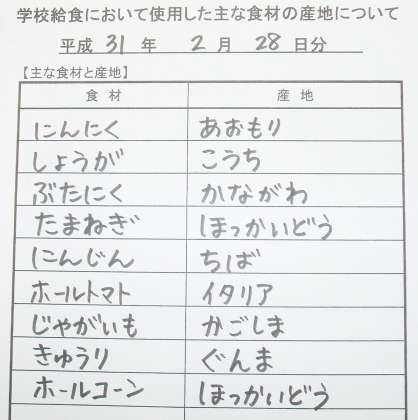 学校給食において使用した主な食材の産地について
平成 31 年 2 月 28 日分
【主な食材と産地】
食材 産地
にんにく あおもり
しょうが こうち
ぶたにく かながわ
たまねぎ ほっかいどう
にんじん ちば
ホールトマト イタリア
じゃがいも かごしま
きゅうり ぐんま
ホールコーン ほっかいどう